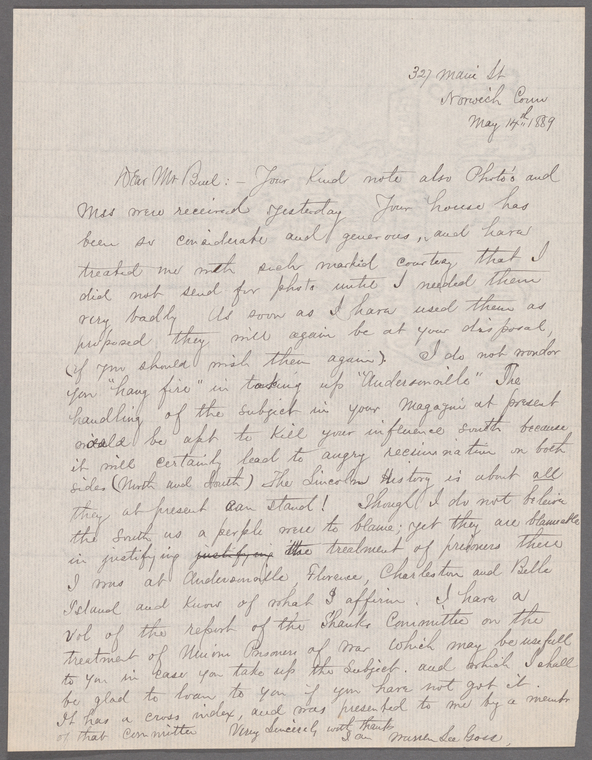 327 Main St
Norwich Conn
May 14th 1889
Dear Mr Buel: – Your Kind note also Photo's and
Mss were received yesterday Your house has
been so considerate and generous, and have
treated me with such markid courtesy that I
did not send for photo until I needed them
very badly As soon as I have used them as
proposed they will again be at your disposal,
(if you should wish them again). I do not wonder
you "hang fire" in taking up "Andersonville" The
handling of the subject in your Magazine at present
would be apt to Kill your influence South because
it will certainly lead to angry recrimination on both
sides (North and South) The Lincoln History is about all
they at present can stand! Though I do not believe
the South as a people were to blame; yet they are blameable
in justifying justifying the treatment of prisoners there
I was at Andersonville, Florence, Charleston and Belle
Island and Know of what I affirm. I have a
Vol of the report of the Shanks Committee on the
treatment of Union Prisoners of War which may be usefull
to you in case you take up the Subject. and which I shall
be glad to loan to you if you have not got it.
It has a cross index, and was presented to me by a member
of that Committee Very Sincerely with thanks
I am Warren Lee Goss,